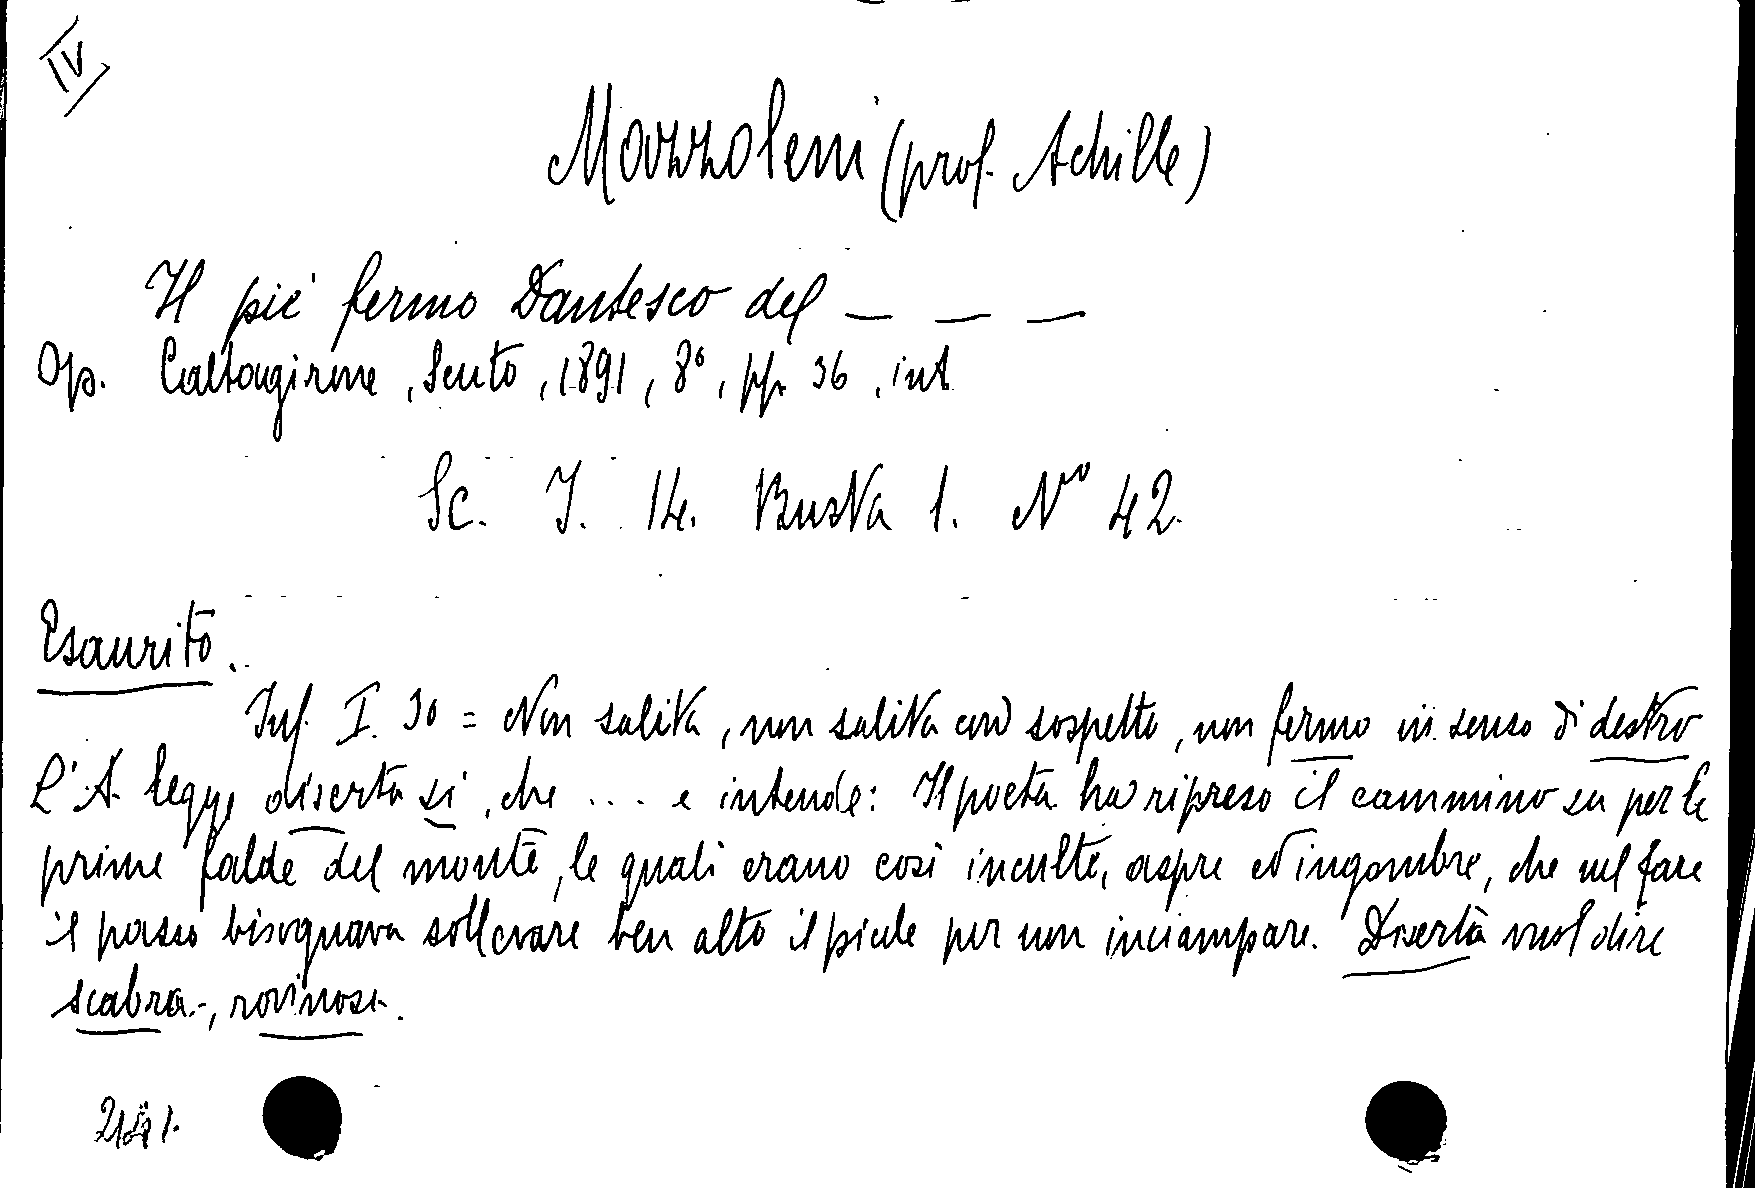 IV
Mazzoleni (prof. Achille)
Il pié fermo Dantesco del _ _ _
Op. Caltagirone, Scuto, 1891, 8°, pp. 36, int
Sc. I. 14. Busta 1. N° 42.
Esaurito.
Inf. I. 30 = Non salita, non salita con sospetto, non fermo in senso di destro
L'A. legge diserta sì, che ... e intende: Il poeta ha ripreso il cammino su per le
prime falde del monte, le quali erano così inculte, aspre ed ingombre, che nel fare
il passo bisognava sollevare ben alto il piede per non inciampare. Diserta vuol dire
scabra, rovinosa.